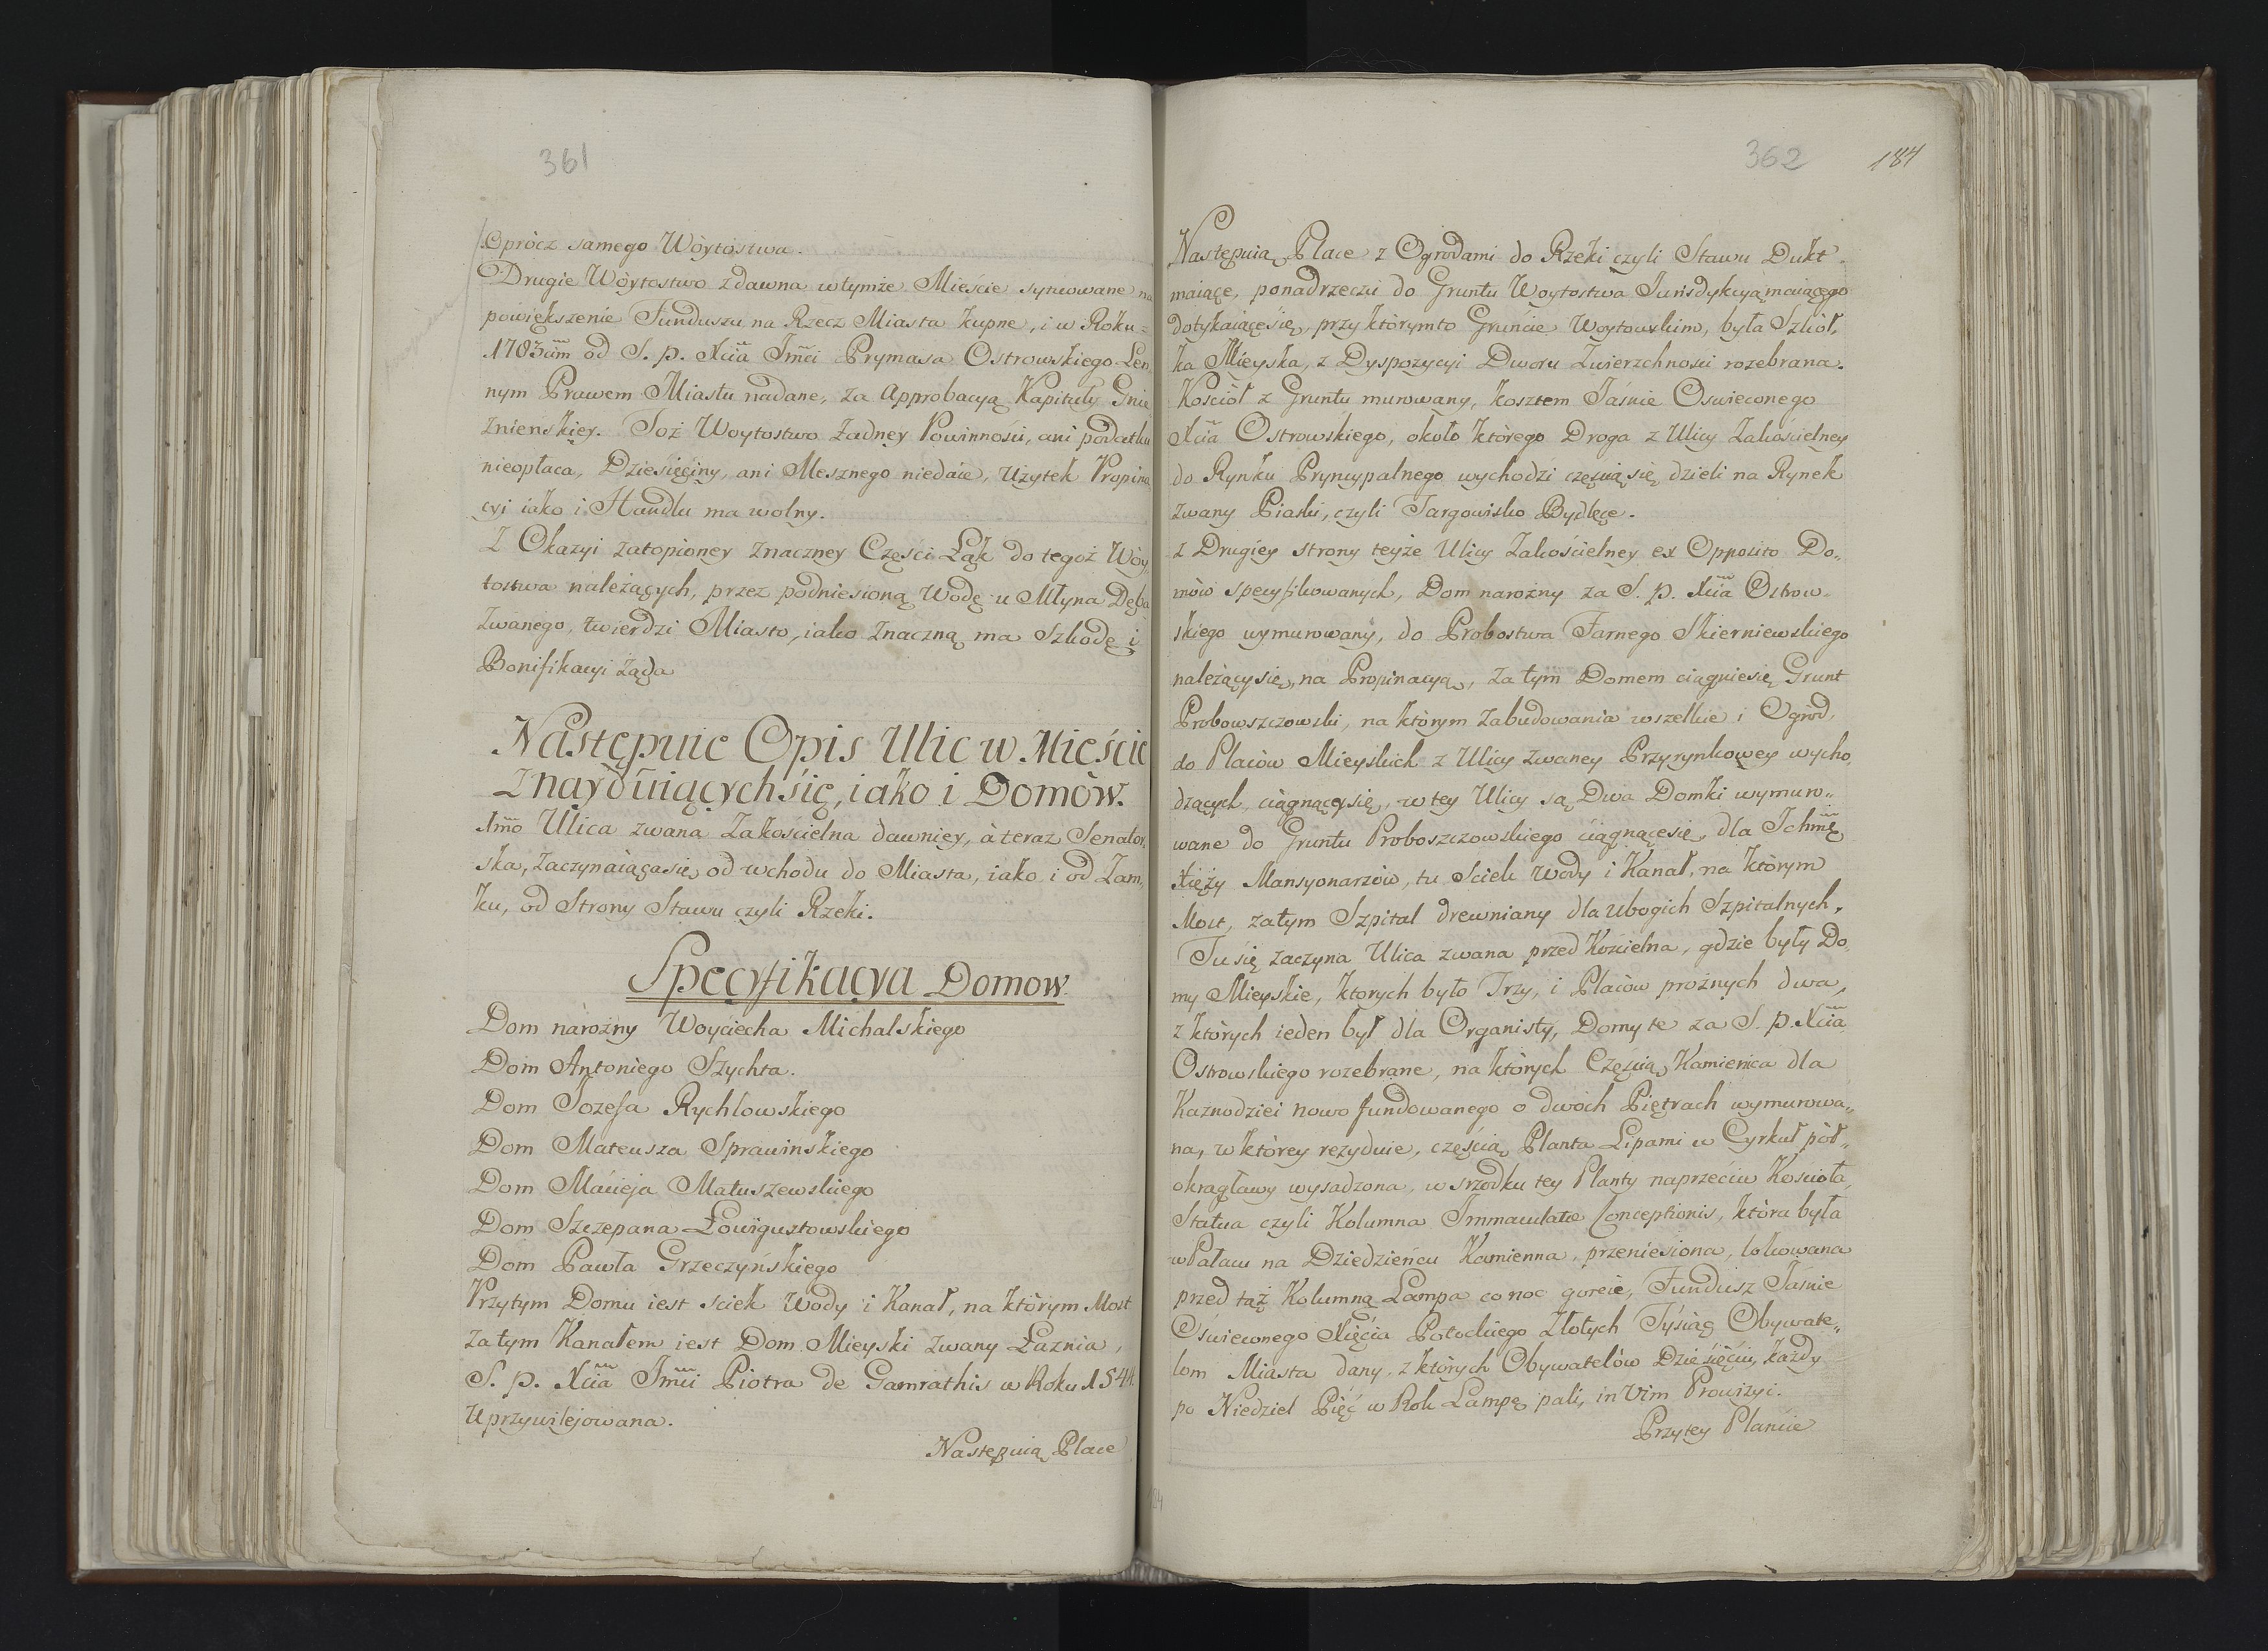 361
Oprócz samego Wóytostwa.
Drugie Wóytostwo zdawna wtymże Mieście sytuowane na
powiększenie Funduszu na Rzecz Miasta kupne, i w Roku
1783cim od S. p. Xcia Jmći Prymasa Ostrowskiego Len,
nym Prawem Miastu nadane, za Approbacyą Kapituły Gnie
znienskiey. Toż Woytostwo żadney Powinności, ani podatku
nieopłaca, Dziesięciny, ani Mesznego niedaie, Użytek Propina
cyi iako i Handlu ma wolny.
Z Okazyi zatopioney znaczney Części Łąk do tegoż Wóy,
tostwa należących, przez podniesioną Wodę u Młyna Dęba
zwanego, twierdzi Miasto, iako znaczną ma Szkodę i
Bonifikacyi żąda
Następuie Opis Ulic w Mieście
Znayduiących się, iako i Domów.
1mo Ulica zwana Zakościelna dawniey, à teraz Senator,
ska, zaczynaiąca się od wchodu do Miasta, iako i od Zam,
ku, od Strony Stawu czyli Rzeki.
Specyfikacya Domow
Dom narożny Woyciecha Michalskiego
Dom Antoniego Szychta.
Dom Jozefa Rychlowskiego
Dom Mateusza Sprawinskiego
Dom Macieja Matuszewskiego
Dom Szczepana
Dom Pawła Grzeczyńskiego
Przytym Domu iest sciek Wody i Kanał, na którym Most
za tym Kanałem iest Dom Mieyski zwany Łaznia,
S. p. Xcia Jmći Piotra de Gamrathis w Roku 1544.
Uprzywilejowana.
Następuią Place
362 184
Następuią Place z Ogrodami do Rzeki czyli Stawu Dukt
maiące, ponadrzeczu do Gruntu Woytostwa Jurisdykcyą maiącego
dotykaiące się, przy którymto Gruńcie Woytowskim, była Szkół,
ka Mieyska, z Dyspozycyi Dworu Zwierzchnosci rozebrana.
Kościół z Gruntu murowany, kosztem Jaśnie Oswieconego
Xcia Ostrowskiego, około którego Droga z Ulicy Zakościelney
do Rynku Pryncypalnego wychodzi częścią się dzieli na Rynek
zwany Piaski, czyli Targowisko Bydlęce.
z Drugiey strony teyże Ulicy Zakościelney ex Opposito Do,,
mów specyfikowanych, Dom narożny za S. p. Xcia Ostrow,,
skiego wymurowany, do Probostwa Farnego Skierniewskiego
należący się, na Propinacyą, za tym Domem ciągnie się Grunt
Probowszczowski, na którym zabudowania wszelkie i Ogród,
do Placów Mieyskich z Ulicy zwaney Przyrynkowey wycho,
dzących, ciągnący się, w tey Ulicy są Dwa Domki wymuro,,
wane do Gruntu Proboszczowskiego ciągnące się, dla Ichmć
Xięży Mansyonarzów, tu Sciek Wody i Kanał, na którym
Most, zatym Szpital drewniany dla ubogich Szpitalnych.
Tu się zaczyna Ulica zwana przed Kościelna, gdzie były Do
my Mieyskie, ktorych było Trzy, i Placów prożnych dwa,
z których ieden był dla Organisty, Domy te za S. p. Xcia
Ostrowskiego rozebrane, na których Częścią Kamienica dla
Kaznodziei nowo fundowanego o dwóch Piętrach wymurowa,,
na, w którey rezyduie, częścią Planta Lipami w Cyrkuł pół,,
okrągławy wysadzona, w srzodku tey Planty naprzeciw Kościoła,
Statua czyli Kolumna Immaculatæ Conceptionis, która była
w Pałacu na Dziedzieńcu Kamienna, przeniesiona, lokowana
przed tąż Kolumną Lampa co noc goreie, Fundusz Jaśnie
Oświeconego Xięcia Potockiego Złotych Tysiąc Obywate,,
lom Miasta dany, z których Obywatelów Dziesięciu, każdy
po Niedziel Pięć w Rok Lampę pali, in Vim Prowizyi.
Przytey Plancie